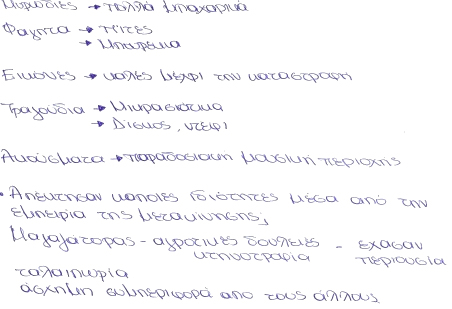 Μυρωδιές → πολλά μπαχαρικά
Φαγητά → Πίτες
→ Μπουρέκια
Εικόνες → καλές μέχρι την καταστροφή
Τραγούδια → Μικρασιάτικα
→ Δίσκος, ντέφι
Ακούσματα → παραδοσιακή μουσική περιοχής
• Απέκτησαν κάποιες ιδιότητες μέσα από την
εμπειρία της μετακίνησης;
Μαγαζάτορας - αγροτικές δουλειές - έχασαν
κτηνοτροφία περιουσία
ταλαιπωρία
άσχημη συμπεριφορά από τους άλλους